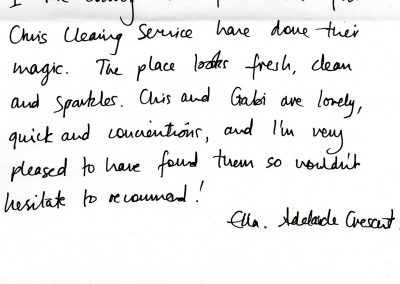 Chris Cleaing Service have done their
magic. The place looks fresh, clean
and sparkles. Chris and Gabi are lovely,
quick and concientious, and I'm very
pleased to have found them so wouldn't
hesitate to recommend!
Ella. Adelaide Crescent.